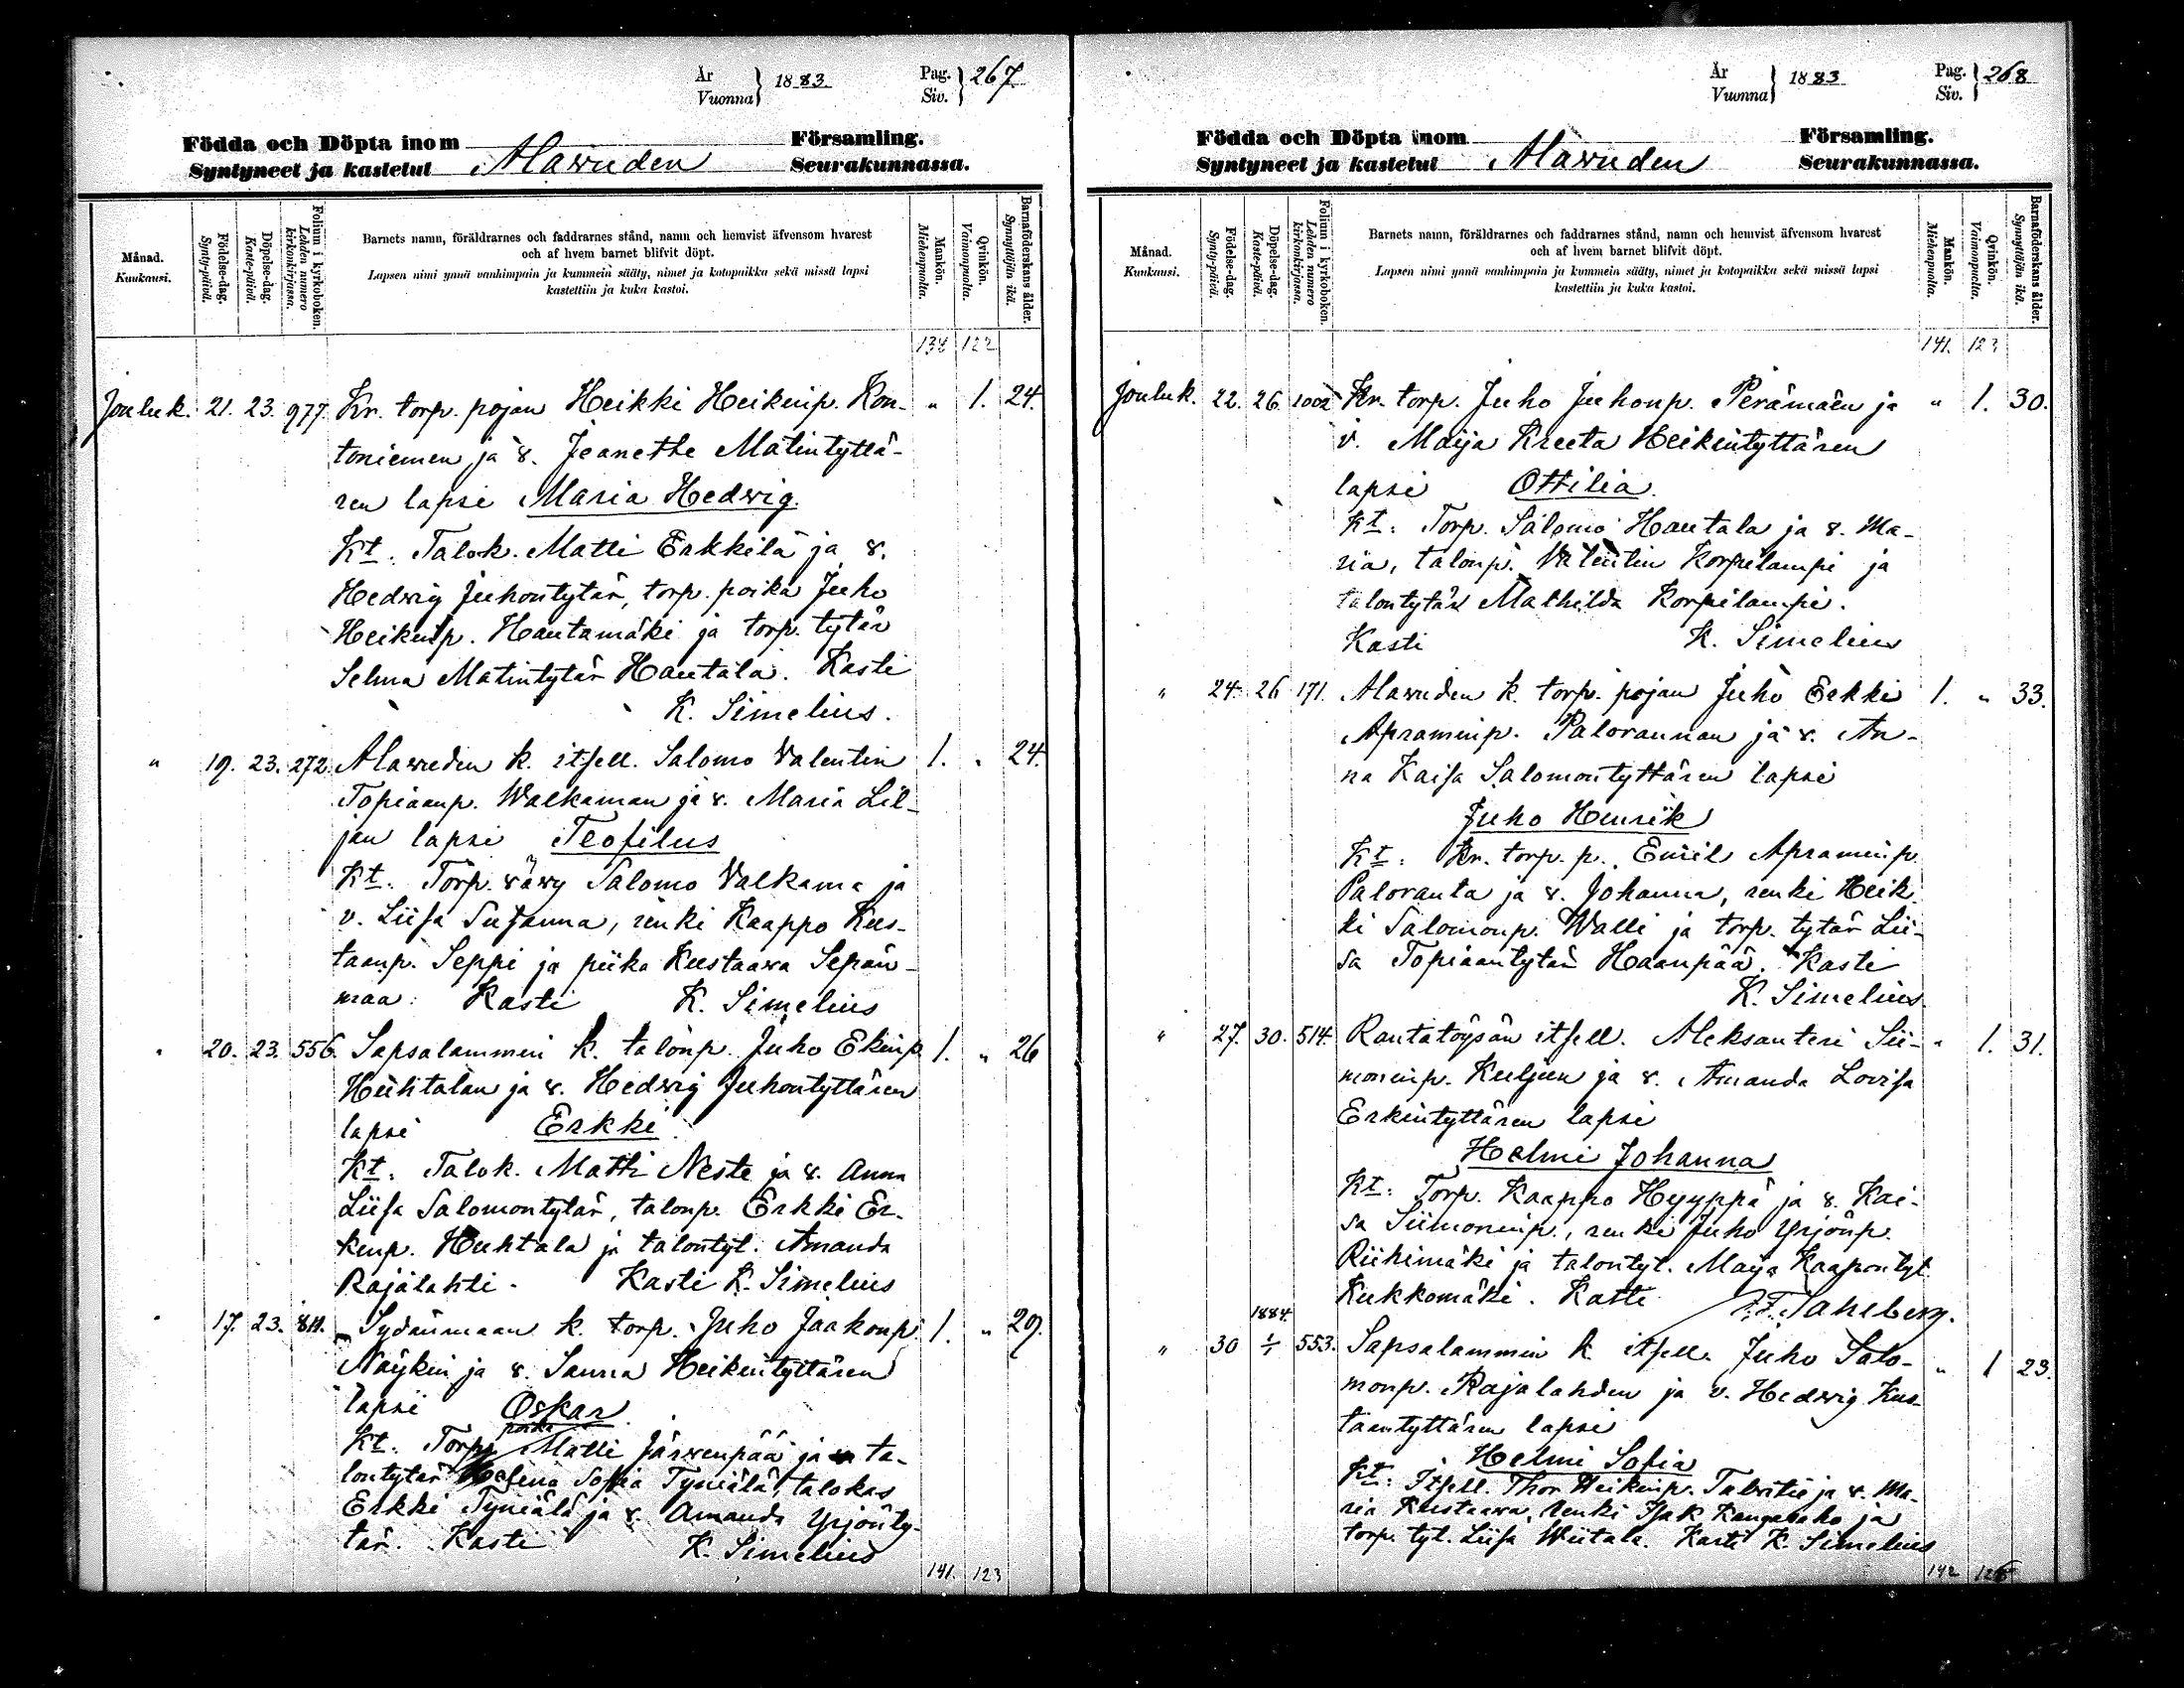 År
Vuonna
1883.
Pag.
Siv.
267
Födda och Döpta inom
Församling.
Syntyneet ja kastetut
Alavuden
Seurakunnassa.
Månad.
Kuukausi.
Födelse-dag.
Synty-päivä.
Döpelse-dag.
Kaste-päivä.
Folium i kyrkoboken.
Lehden numero
kirkonkirjassa.
Barnets namn, föräldrarnes och faddrarnes stånd, namn och hemvist äfvensom hvarest
och af hvem barnet blifvit döpt.
Lapsen nimi ynnä vanhimpain ja kummein sääty, nimet ja kotopaikka sekä missä lapsi
kastettiin ja kuka kastoi.
Mankön.
Miehenpuolta.
Qvinkön.
Vaimonpuolta.
Barnaföderskans ålder.
Synnyttäjän ikä.
138 122
Jouluk. 21. 23. 977. Kr. torp. pojan Heikki Heikinp. Kon- " 1. 24.
toniemen ja v. Jeanette Matintyttä-
ren lapsi Maria Hedwig.
Kt. Talok. Matti Erkkilä ja v.
Hedwig Juhontytär, torp. poika Juho
Heikinp. Hautamäki ja torp. tytär
Selma Matintytär Hautala. Kasti
K. Simelius.
" 19. 23. 272. Alavuden k. itsell. Salomo Valentin 1. " 24.
Topiaanp. Walkaman ja v. Maria Lil-
jan lapsi Teofilus
Kt. Torp. vävy Salomo Valkama ja
v. Liisa Susanna, renki Kaappo Kus-
taanp. Seppi ja piika Kustaava Sepän-
maa. Kasti K. Simelius
" 20. 23. 556. Sapsalammin k. talonp. Juho Ekinp. 1. " 26
Huhtalan ja v. Hedwig Juhontyttären
lapsi Erkki.
Kt. Talok. Matti Neste ja v. Anna
Liisa Salomontytär, talonp. Erkki Er-
kinp. Huhtala ja talontyt. Amanda
Rajalahti. Kasti K. Simelius
" 17. 23. 811. Sydänmaan k. torp. Juho Jaakonp. 1. " 29.
Näykin ja v. Sanna Heikintyttären
lapsi Oskar.
poika
Kt. Torp. Matti Järvenpää ja ta-
lontytär Sofia Tyniälä, talokas
Erkki Tyniälä ja v. Amanda Yrjönty-
tär. Kasti K. Simelius
141. 123
År
Vuonna
1883
Pag.
Siv.
268
Födda och Döpta inom
Församling.
Syntyneet ja kastetut
Alavuden
Seurakunnassa.
Månad.
Kuukausi.
Födelse-dag.
Synty-päivä.
Döpelse-dag.
Kaste-päivä.
Folium i kyrkoboken.
Lehden numero
kirkonkirjassa.
Barnets namn, föräldrarnes och faddrarnes stånd, namn och hemvist äfvensom hvarest
och af hvem barnet blifvit döpt.
Lapsen nimi ynnä vanhimpain ja kummein sääty, nimet ja kotopaikka sekä missä lapsi
kastettiin ja kuka kastoi.
Mankön.
Miehenpuolta.
Qvinkön.
Vaimonpuolta.
Barnaföderskans ålder.
Synnyttäjän ikä.
141. 123
Jouluk. 22. 26. 1002 Kr. torp. Juho Juhonp. Perämäen ja " 1. 30.
v. Maija Kreeta Heikintyttären
lapsi Ottilia.
Kt. Torp. Salomo Hautala ja v. Ma-
ria, talonp. Valentin Korpilampi ja
talontytär Mathilda Korpilampi.
Kasti K. Simelius
" 24. 26 171. Alavuden k. torp. pojan Juho Erkki 1. " 33.
Apraminp. Palorannan ja v. An-
na Kaisa Salomontyttären lapsi
Juho Henrik
Kt. Kr. torp. p. Emil Apraminp.
Paloranta ja v. Johanna, renki Heik-
ki Salomonp. Walli ja torp. tytär Lii-
sa Topiaantytär Haanpää. Kasti
K. Simelius.
" 27. 30. 514. Rantatöysän itsell. Aleksanteri Sii- " 1. 31.
moninp. Kuljun ja v. Amanda Lovisa
Erkintyttären lapsi
Helmi Johanna
Kt. Torp. Kaappo Hyyppä ja v. Kai-
sa Siimoninp., renki Juho Yrjönp.
Riihimäki ja talontyt. Maija Kaapontyt.
Kukkomäki. Kasti F. F. Sahlberg.
1884.
" 30 1/1 553. Sapsalammin k. itsell. Juho Salo- " 1 23.
monp. Rajalahden ja v. Hedwig Kus-
taantyttären lapsi
Helmi Sofia
Kt. Itsell. Thor Heikinp. ja v. Ma-
ria Kustaava, renki Isak Kangasaho ja
torp. tyt. Liisa Wiitala. Kasti K. Simelius
142 126